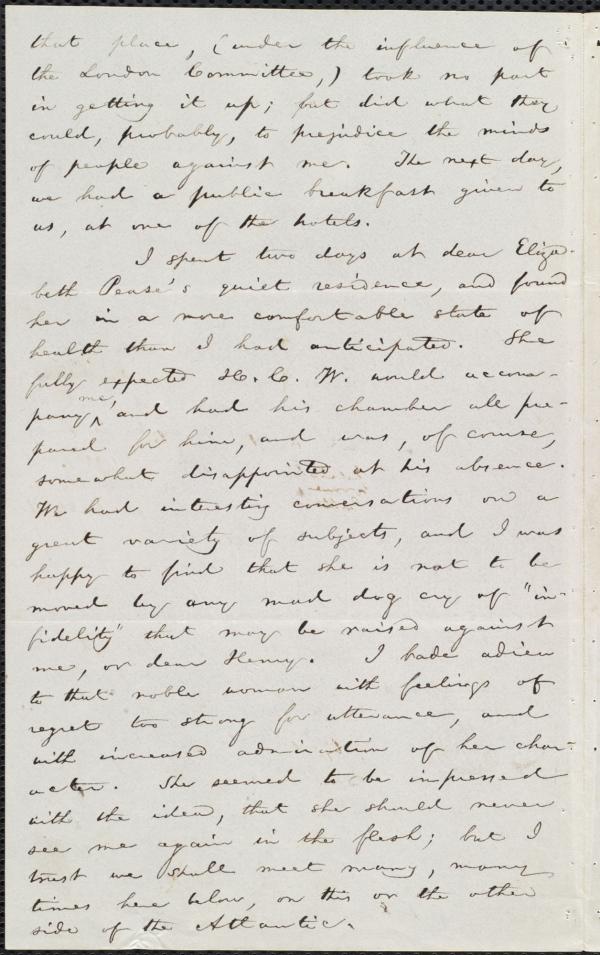 that place, (under the influence of
the London Committee,) took no part
in getting it up; but did what they
could, probably, to prejudice the minds
of people against me. The next day,
we had a public breakfast given to
us, at one of the hotels.
I spent two days at dear Eliza-
beth Pease's quiet residence, and found
her in a more comfortable state of
health than I had anticipated. She
fully expected H. C. W. would accom-
pany me, and had his chamber all pre-
pared for him, and was, of course,
somewhat disappointed at his absence.
We had interesting conversations on a
great variety of subjects, and I was
happy to find that she is not to be
moved by any mad dog cry of "in-
fidelity" that may be raised against
me, or dear Henry. I bade adieu
to that noble woman with feelings of
regret too strong for utterance, and
with increased admiration of her char-
acter. She seemed to be impressed
with the idea, that she should never
see me again in the flesh; but I
trust we shall meet many, many
times here below, on this or the other
side of the Atlantic.